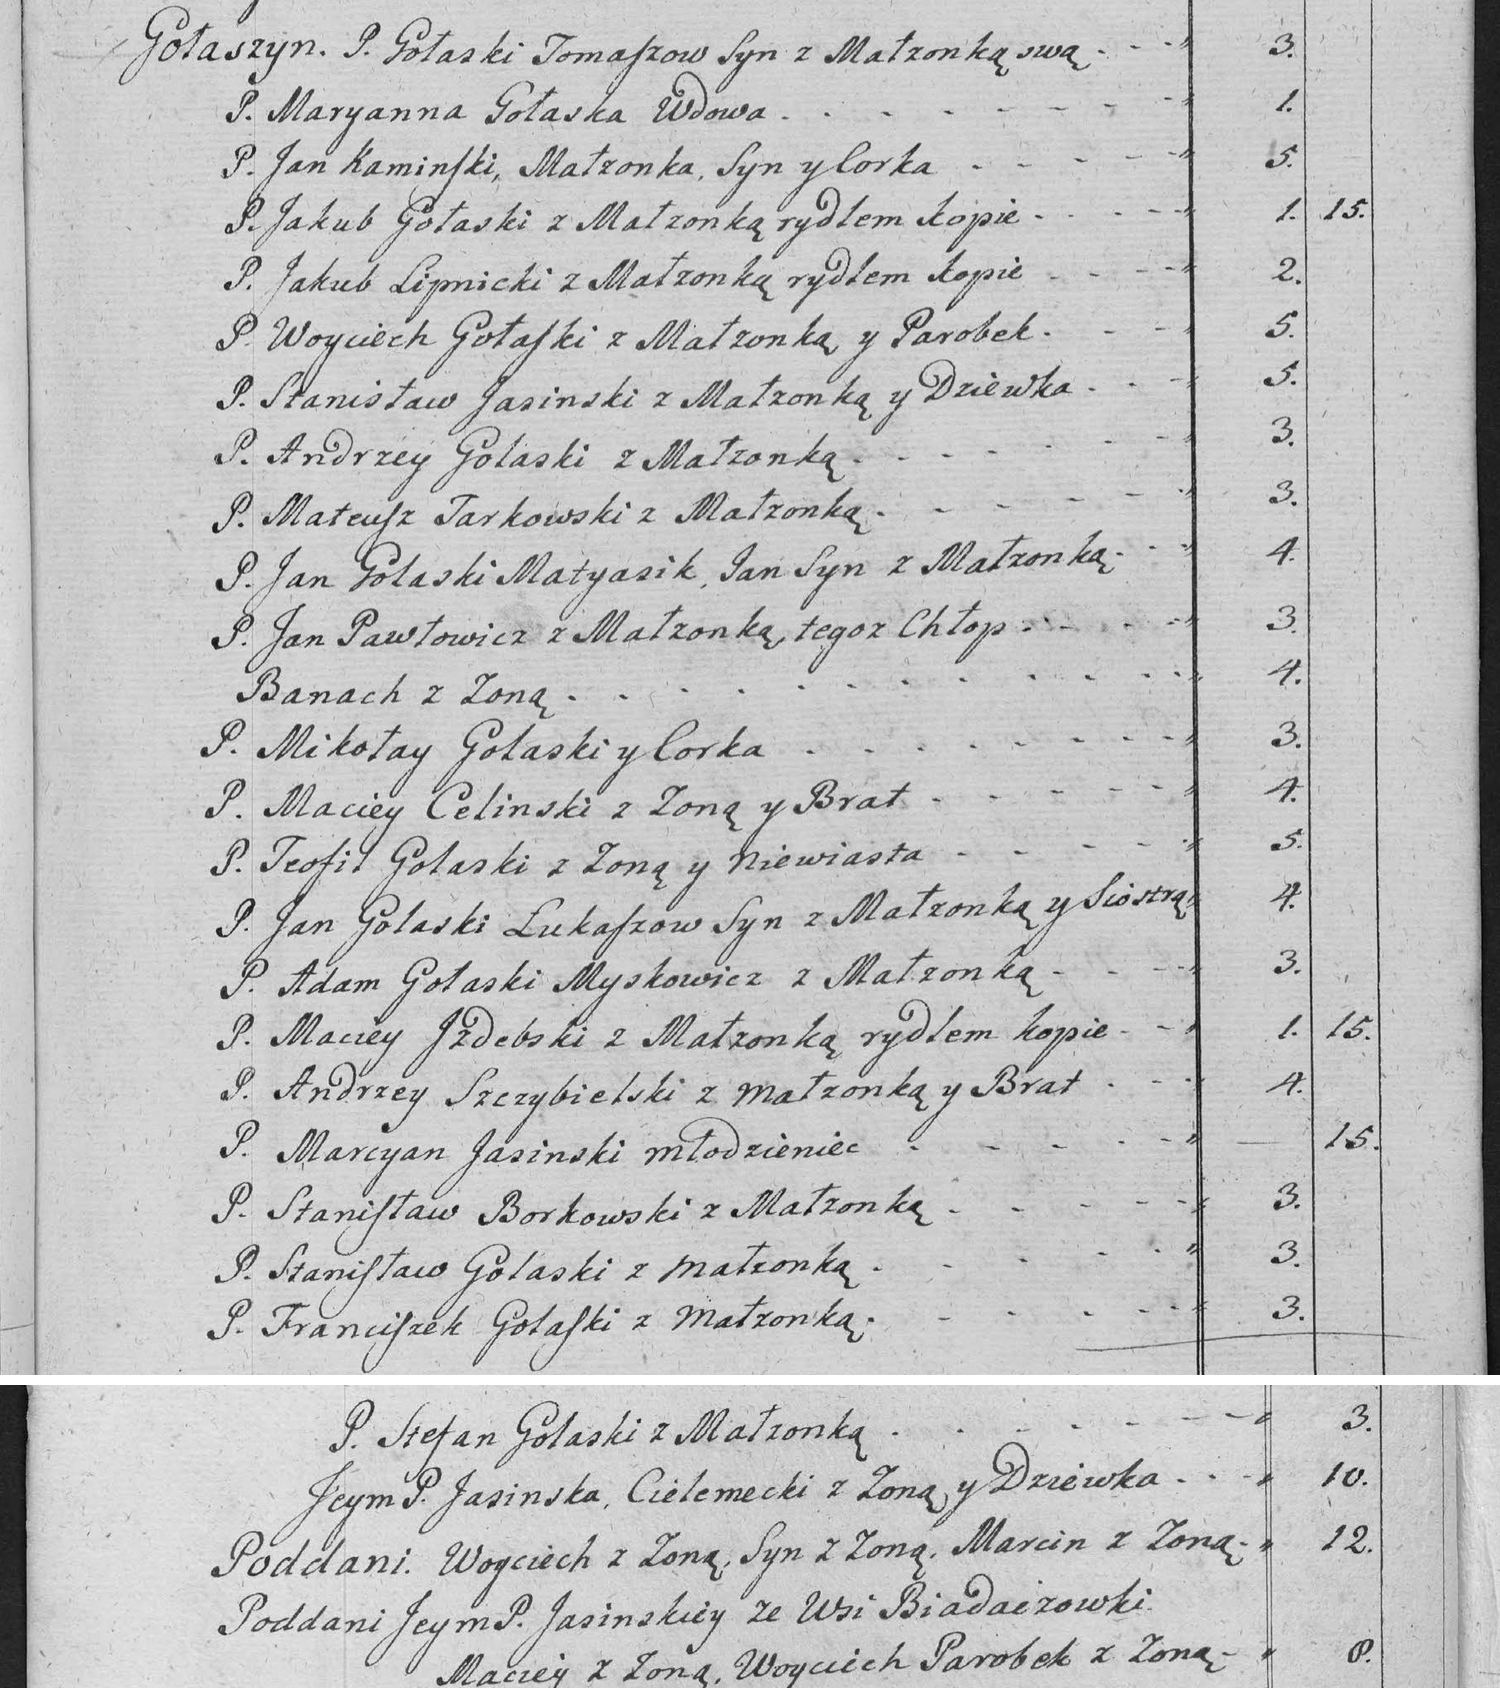 Gołaszyn. P. Gołaski Tomaszow Syn z Małzonką swą - - - " 3.
P. Maryanna Gołaska Wdowa - - - - - - - " 1.
P. Jan Kaminski, Małzonka, Syn y Corka - - - - - " 5.
P. Jakub Gołaski z Małzonką rydlem kopie - - - - " 1. 15.
P. Jakub Lipnicki z Małzonką rydlem kopie - - - - " 2.
P. Woyciech Gołaski z Małzonką y Parobek - - - " 5.
P. Stanisław Jasinski z Małzonką y Dziewka - - - " 5.
P. Andrzey Golaski z Małzonką - - - - - - " 3.
P. Mateusz Tarkowski z Małzonką - - - - - " 3.
P. Jan Golaski Matyasik, Jan Syn z Małzonką - - " 4.
P. Jan Pawłowicz z Małzonką, tegoz Chłop - - - - " 3.
Banach z Zoną - - - - - - - - - - - " 4.
P. Mikołay Golaski y Corka - - - - - - - " 3.
P. Maciey Celinski z Zoną y Brat - - - - - " 4.
P. Teofil Golaski z Zoną y Niewiasta - - - - - " 5.
P. Jan Golaski Lukaszow Syn z Małzonką y Siostrą " 4.
P. Adam Gołaski Myskowicz z Małzonką - - - " 3.
P. Maciey Jzdebski z Małzonką rydlem kopie - - " 1. 15.
P. Andrzey Szczybielski z małzonką y Brat - - - 4.
P. Marcyan Jasinski młodzieniec - - - - - " — 15.
P. Stanisław Borkowski z Małzonką - - - - - " 3.
P. Stanisław Golaski z małzonką - - - - - " 3.
P. Franciszek Golaski z Małzonką - - - - - " 3.
P. Stefan Golaski z Małzonką - - - - - - " 3.
Jeym P. Jasinska, Cielemecki z Zoną y Dziewka - - - " 10.
Poddani. Woyciech z Zoną, Syn z Zoną, Marcin z Zoną - " 12.
Poddani JeymP. Jasinskiey ze Wsi Biadaczowki
Maciey z Zoną, Woyciech Parobek z Zoną - " 8.